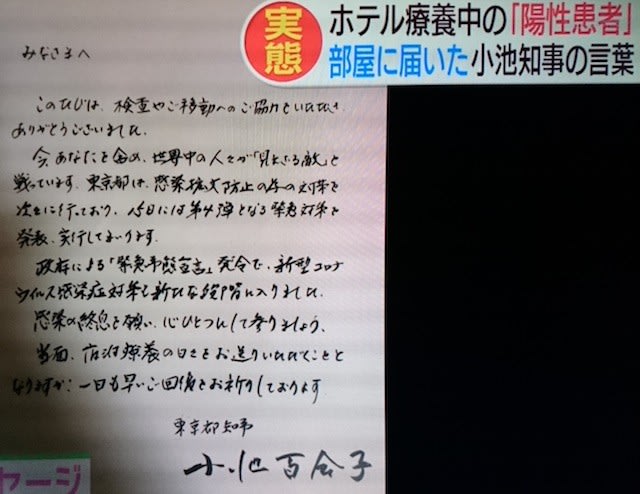 実態
ホテル療養中の「陽性患者」
部屋に届いた小池知事の言葉
みなさまへ
このたびは、検査やご移動へのご協力をいただき
ありがとうございました。
今、あなたを含め、世界中の人々が「見えざる敵」と
戦っています。東京都は、感染拡大防止の為の対策を
次々に行っており、15日には第4弾となる緊急対策を
発表、実行してまいります。
政府による「緊急事態宣言」発令で、新型コロナ
ウイルス感染症対策も新たな段階に入りました。
感染の終息を願い、心ひとつにして参りましょう。
当面、宿泊療養の日々をお送りいただくことと
なりますが、一日も早いご回復をお祈りしております
東京都知事
小池百合子
セージ